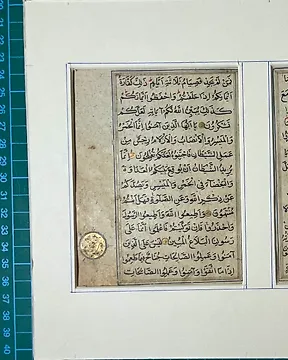 فمن لم يجد فصيام ثلاثة أيام ذلك كفارة
أيمانكم إذا حلفتم واحفظوا أيمانكم
كذلك يبين الله لكم آياته لعلكم
تشكرون يا أيها الذين آمنوا إنما الخمر
والميسر والأنصاب والأزلام رجس من
عمل الشيطان فاجتنبوه لعلكم تفلحون إنما
يريد الشيطان أن يوقع بينكم العداوة
والبغضاء في الخمر والميسر ويصدكم
عن ذكر الله وعن الصلاة فهل أنتم
منتهون وأطيعوا الله وأطيعوا الرسول
واحذروا فإن توليتم فاعلموا أنما على
رسولنا البلاغ المبين ليس على الذين
آمنوا وعملوا الصالحات جناح فيما طعموا
إذا ما اتقوا وآمنوا وعملوا الصالحات
27
28
29
30
31
32
33
34
35
36
37
38
39
40